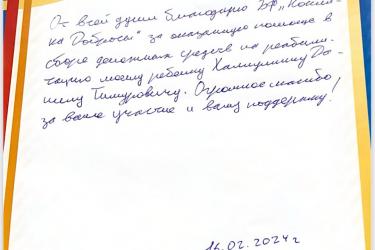 От всей души благодарю БФ „Копил-
ка Доброты" за оказанную помощь в
сборе денежных средств на реабили-
тацию моему ребенку Халиуллину Да-
нилу Тимуровичу. Огромное спасибо
за ваше участие и вашу поддержку!
16.02.2024г